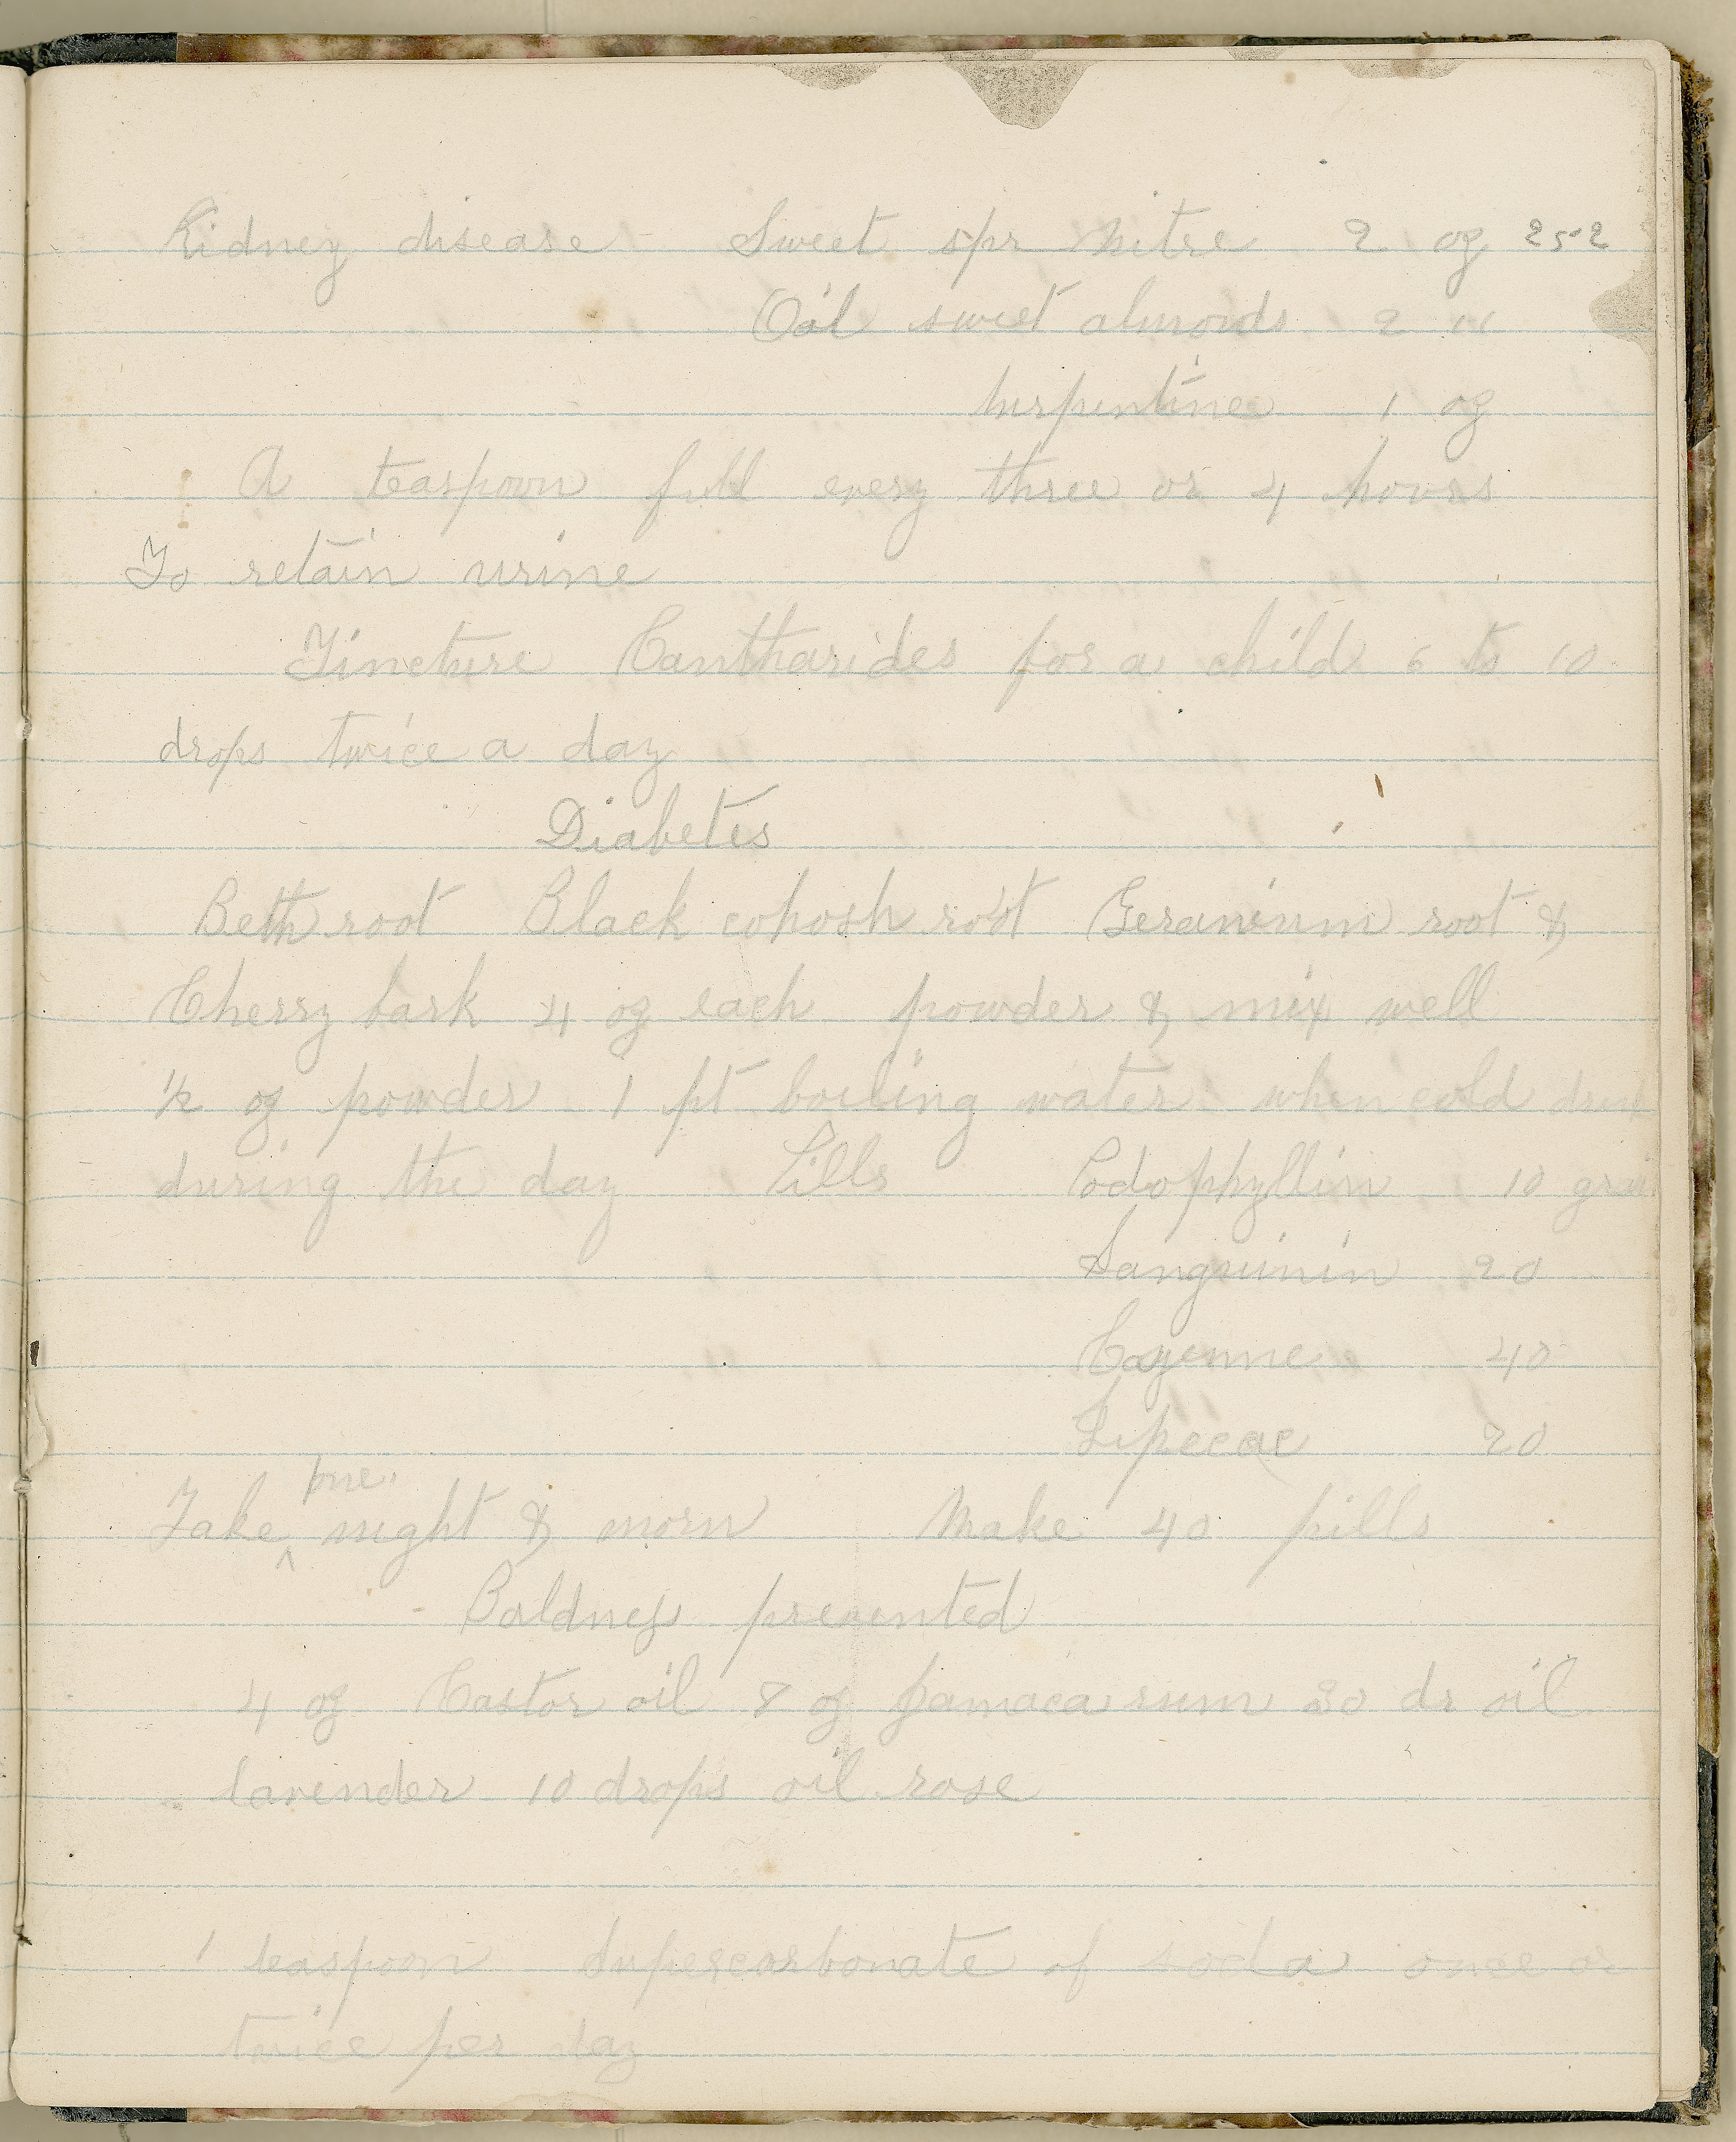 Kidney disease - Sweet spr nitre 2 oz 252
Oil sweet almonds 2 "
turpentine 1 oz
A teaspoon full every three or 4 hours
To retain urine
Tincture Cantharides for a child 6 to 10
drops twice a day
Diabetes
Beth root Black cohosh root Geranium root &
Cherry bark 4 oz each powder & mix well
1/2 oz powder 1 pt boiling water when cold drink
during the day Pills Podophyllin 10 grain
Sanguinin 20
Cayenne 40
Ipecac 20
one
Take ^ night & morn Make 40 pills
- Baldness prevented
4 oz Castor oil 8 oz Jamaca rum 30 dr oil
lavender 10 drops oil rose
1 teaspoon Supercarbonate of soda once or
twice per day